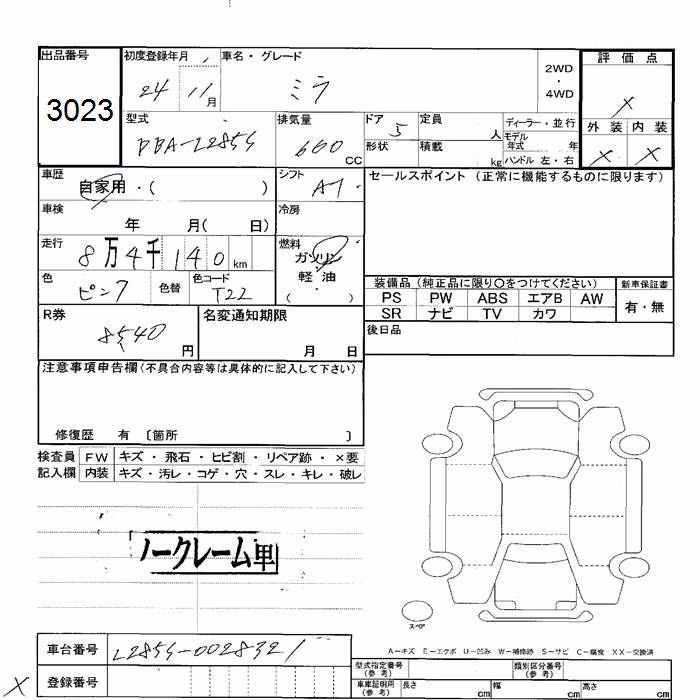 出品番号
3023
初度登録年月
24 11月
車名・グレード
ミラ
2WD
・
4WD
評価点
X
外装 内装
X X
型式
DBA-L285S
排気量
660 CC
ドア 5
定員 人
形状
積載 kg
ディーラー・並行
モデル年式 年
ハンドル 左・右
車歴
自家用・( )
シフト
AT
セールスポイント (正常に機能するものに限ります)
車検
年 月( 日)
冷房
走行
8万4千140km
燃料
ガソリン
軽・油
( )
色
ピンク
色替
色コード
T22
装備品(純正品に限り○をつけてください)
新車保証書
PS PW ABS エアB AW
SR ナビ TV カワ
有・無
R券
8540 円
名変通知期限
月 日
後日品
注意事項申告欄(不具合内容等は具体的に記入して下さい)
修復歴 有 〔箇所 〕
検査員 FW キズ・飛石・ヒビ割・リペア跡・×要
記入欄 内装 キズ・汚レ・コゲ・穴・スレ・キレ・破レ
ノークレーム車
スペア
A−キズ E−エクボ U−凹み W−補修跡 S−サビ C−腐食 XX−交換済
車台番号
L285S-0028321
X
登録番号
型式指定番号(参考)
類別区分番号(参考)
車庫証明用(参考)
長さ cm 幅 cm 高さ cm